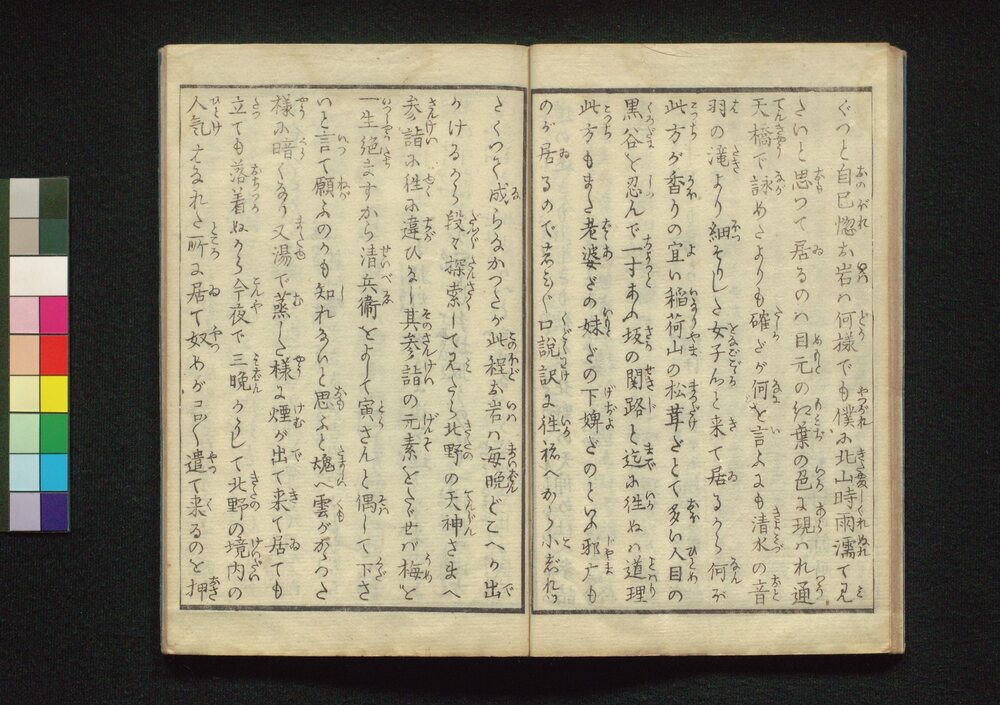 ぐつと自己惚お岩ハ何様でも僕に北山時雨濡て見
たいと思つて居るのハ目元の紅葉の色に現ハれ通
天橋で詠めたよりも確だが何を言ふにも清水の音
羽の滝より細そりした女子んと来て居るから何が
此方が香りの宜い稲荷山の松茸だとて多い人目の
黒谷を忍んで一寸あふ坂の関路と迄に往ぬハ道理
此方もまた老婆だの妹だの下婢だのといふ邪广も
のが居るので口説訳に往
さくつく成らなかつたが此程お岩ハ毎晩どこへか出
かけるから段々探索して見たら北野の天神さまへ
参詣に往に違ひなし其参詣の元素をたゞせバ梅を
一生絶ますから清兵衛をよして寅さんと偶して下さ
いと言て願ふのかも知れないと思ふと魂へ雲がかゝつた
様に暗くなり又湯で蒸した様に煙が出て来て居ても
立ても落着ぬから今夜で三晩かうして北野の境内の
人気はなれた所に居て奴めがコロ〳〵遣て来るのを押